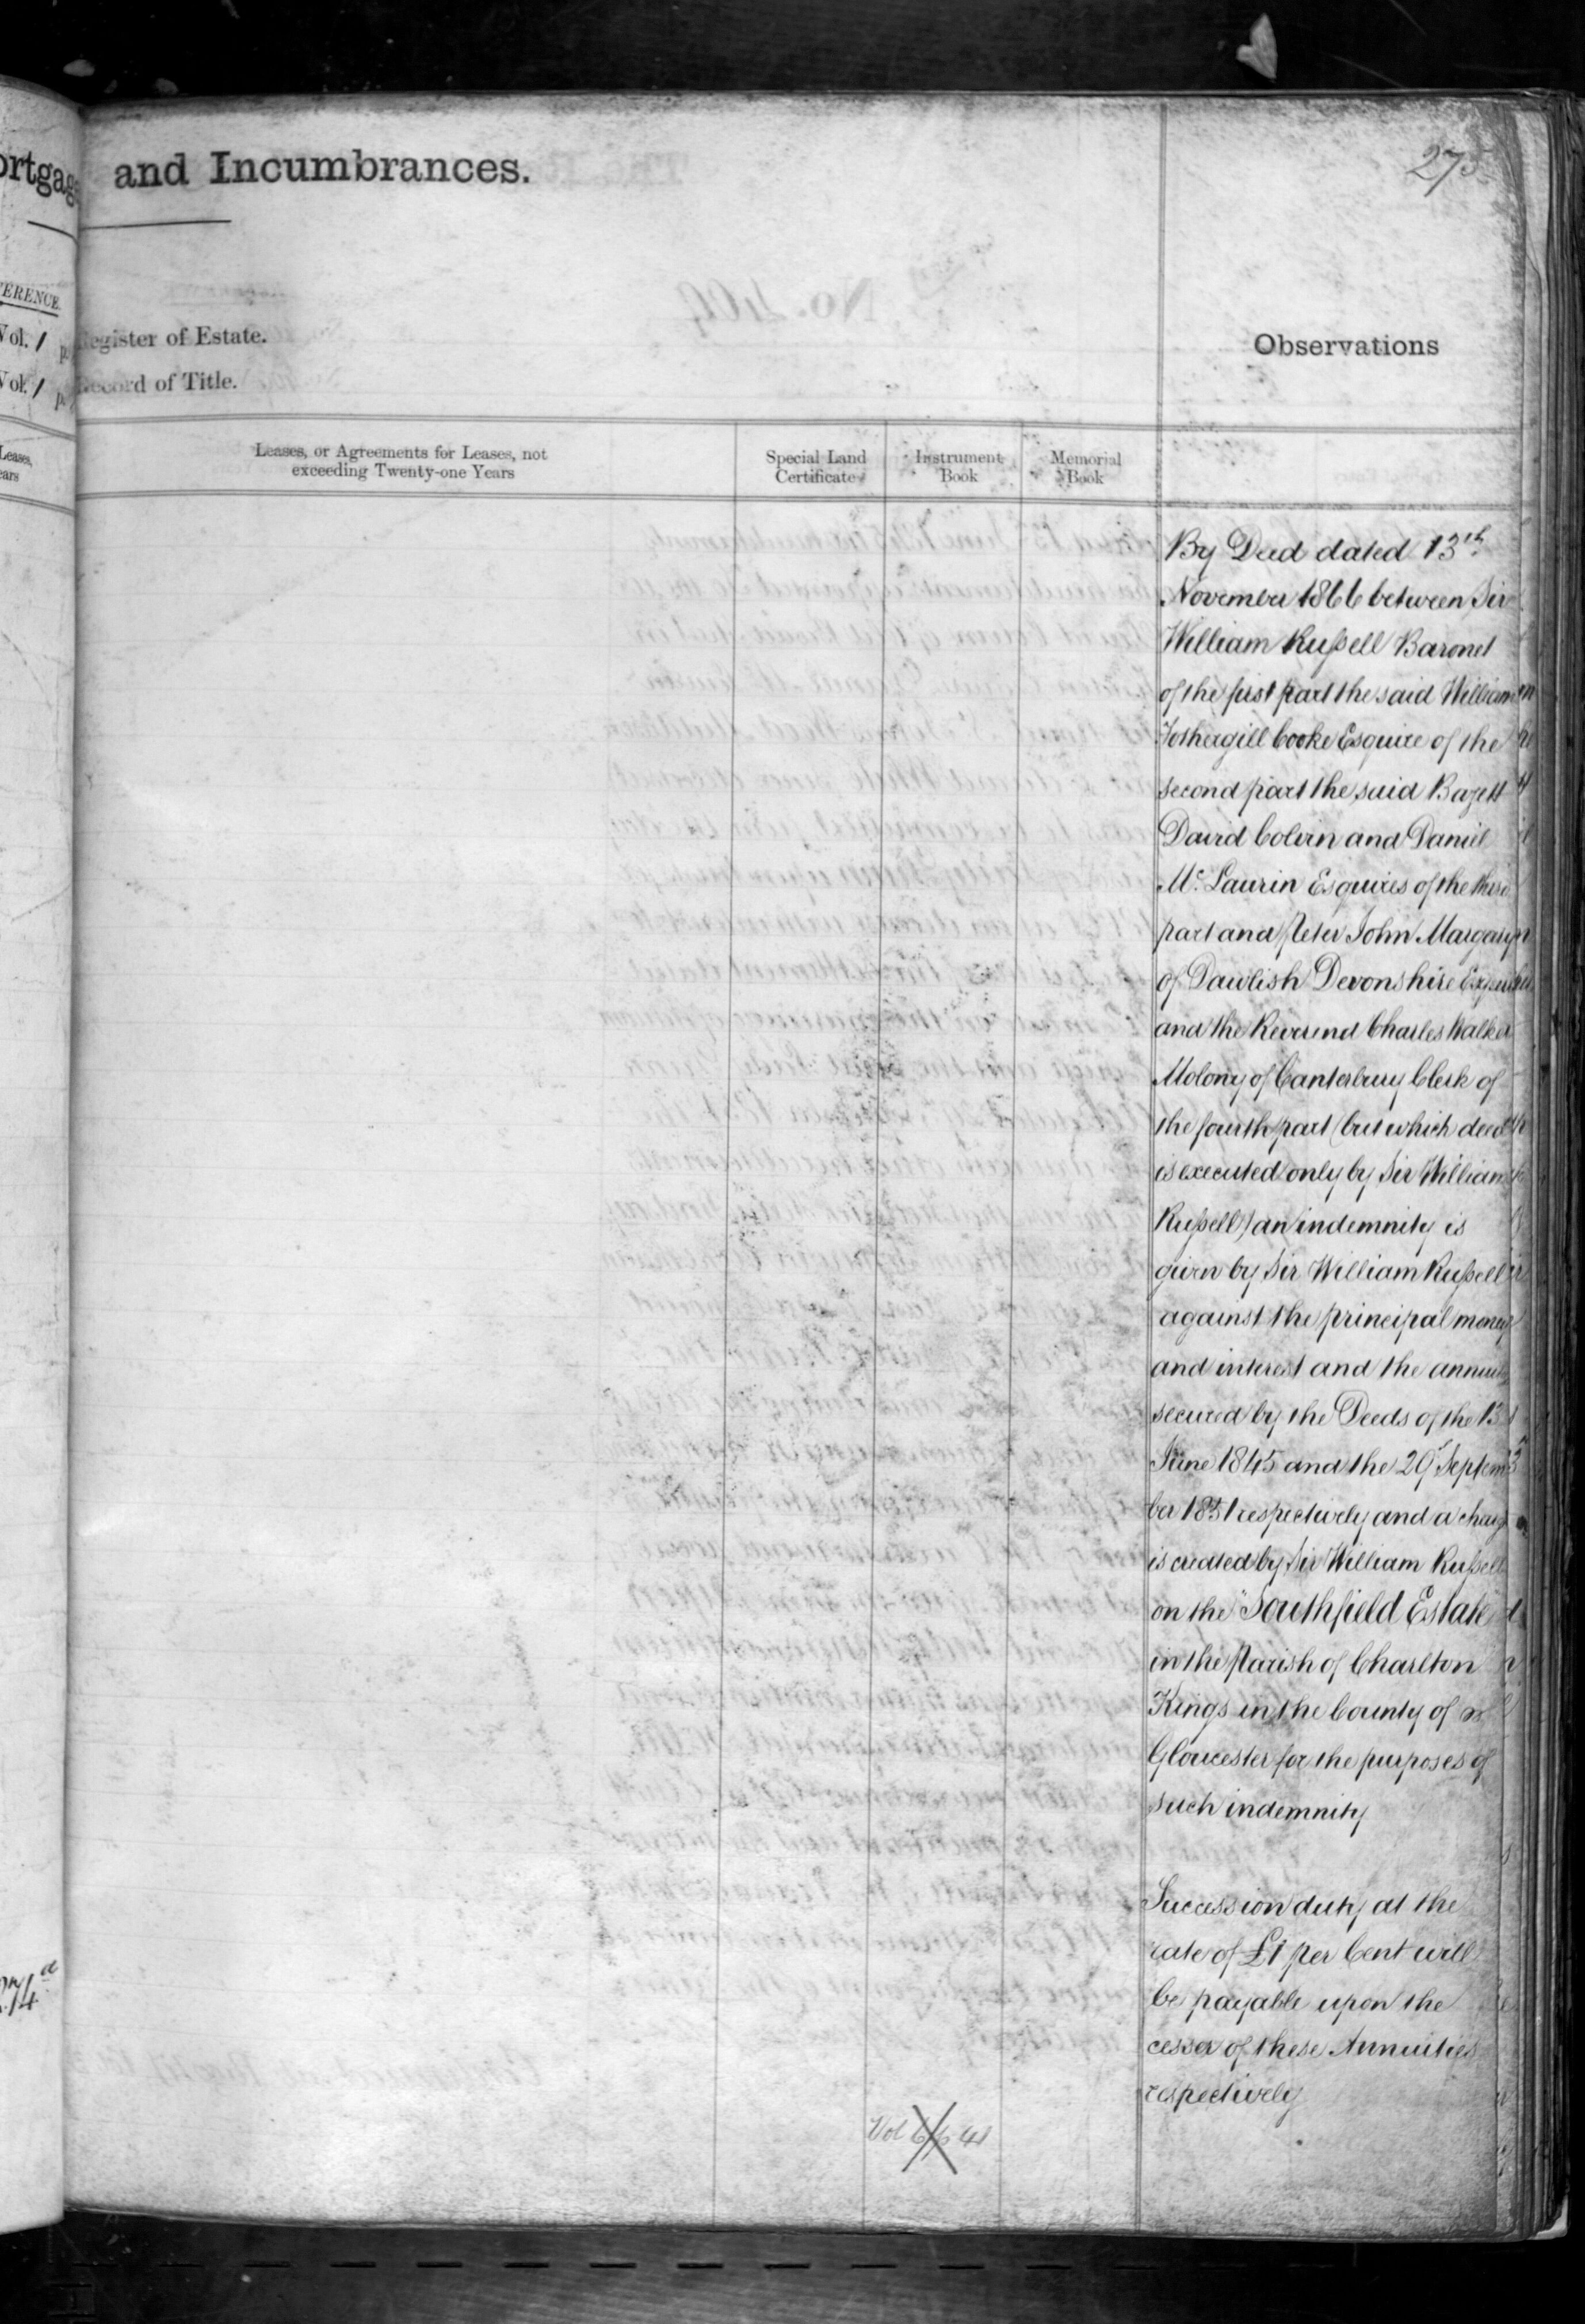 and Incumbrances.
275
FERENCE.
Vol. 1
Register of Estate.
Observations
Vol. 1
Record of Title.
Leases,
Leases, or Agreements for Leases, not
exceeding Twenty-one Years
Special Land
Certificate
Instrument
Book
Memorial
Book
By Deed dated 13th
November 1866 between Sir
William Russell Baronet
of the first part the said William
Fothergill Cooke Esquire of the
second part the said Bazett
David Colvin and Daniel
Mc. Laurin Esquires of the third
part and Peter John Margary
of Dawlish Devonshire Esquire
and the Reverend Charles Walker
Molony of Canterbury Clerk of
the fourth part (but which deed
is executed only by Sir William
Russell) an indemnity is
given by Sir William Russell
against the principal money
and interest and the annuity
secured by the Deeds of the 13
June 1845 and the 29 Septem
ber 1851 respectively and a charge
is created by Sir William Russell
on the "Southfield Estate"
in the Parish of Charlton
Kings in the County of
Gloucester for the purposes of
such indemnity
Succession duty at the
rate of £1 per Cent will
be payable upon the
cesser of these Annuities
respectively
Vol